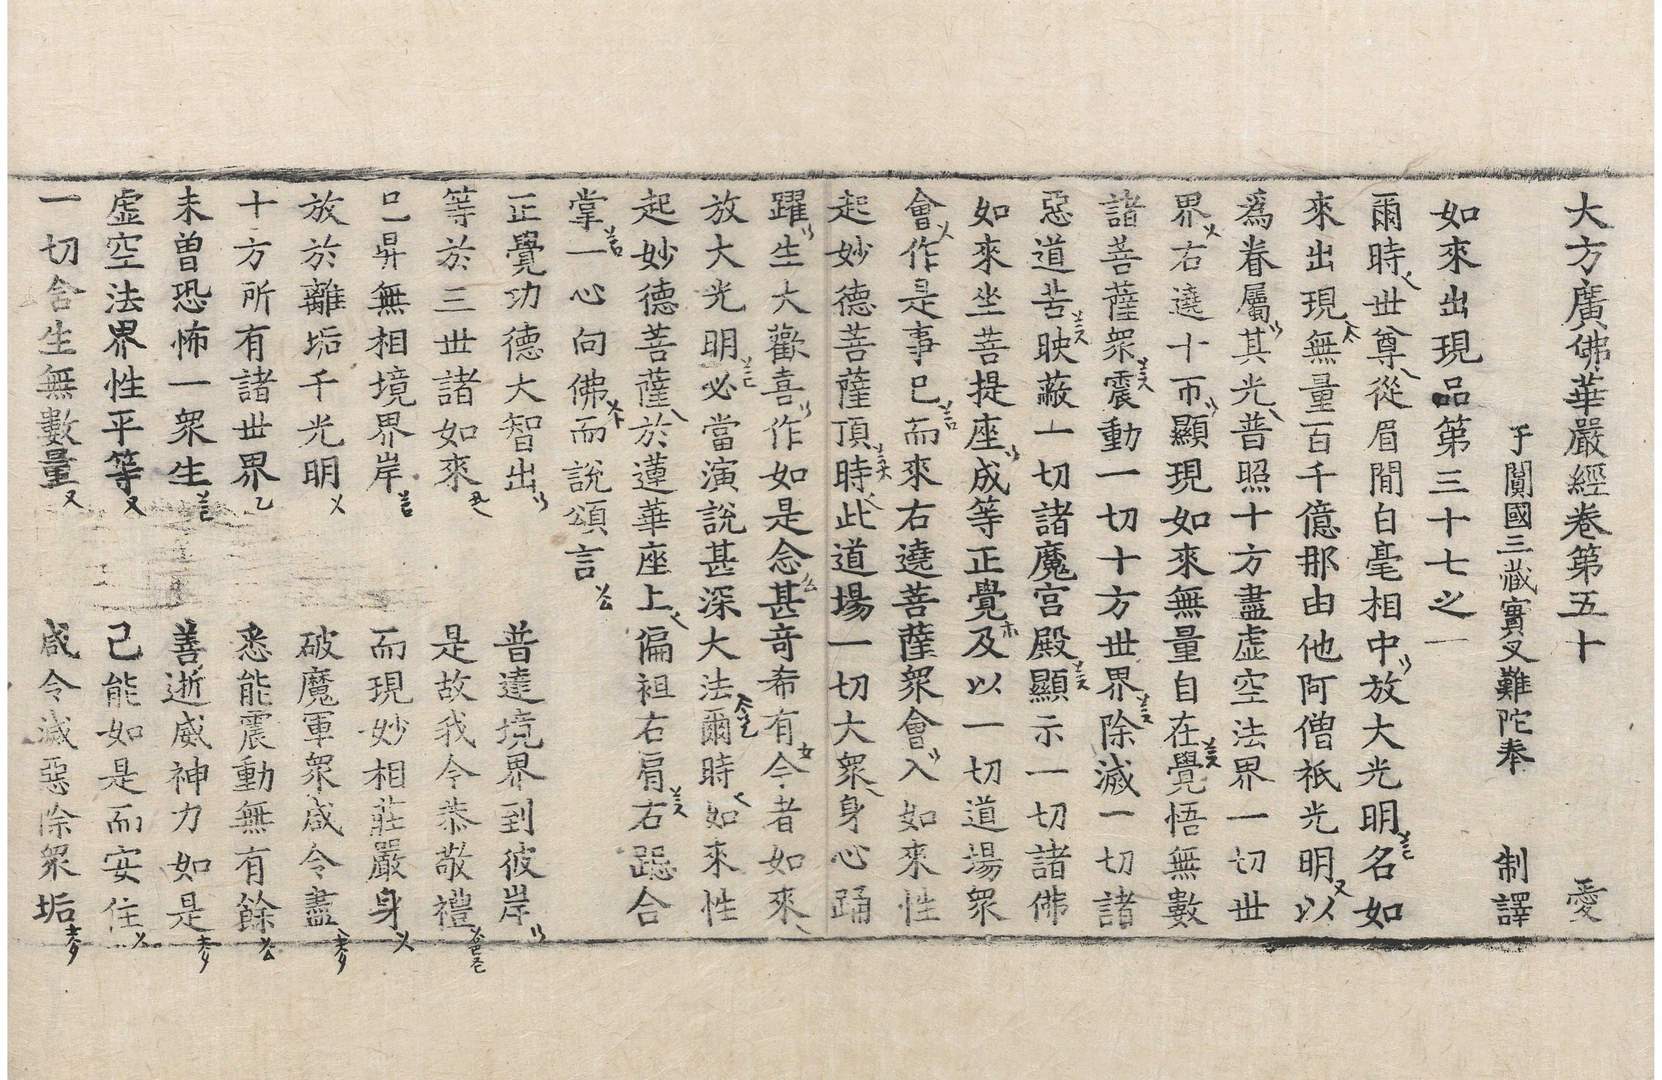 大方廣佛華嚴經卷第五十 愛
于闐國三藏實叉難陀奉 制譯
如來出現品第三十七之一
爾時世尊從眉間白毫相中放大光明名如
來出現無量百千億那由他阿僧祇光明以
爲眷屬其光普照十方盡虛空法界一切世
界右遶十帀顯現如來無量自在覺悟無數
諸菩薩衆震動一切十方世界除滅一切諸
惡道苦映蔽一切諸魔宮殿顯示一切諸佛
如來坐菩提座成等正覺及以一切道場衆
會作是事已而來右遶菩薩衆會入如來性
起妙德菩薩頂時此道場一切大衆身心踊
躍生大歡喜作如是念甚奇希有今者如來
放大光明必當演說甚深大法爾時如來性
起妙德菩薩於蓮華座上偏袒右肩右跽合
掌一心向佛而說頌言
正覺功德大智出 普達境界到彼岸
等於三世諸如來 是故我今恭敬禮
已昇無相境界岸 而現妙相莊嚴身
放於離垢千光明 破魔軍衆咸令盡
十方所有諸世界 悉能震動無有餘
未曾恐怖一衆生 善逝威神力如是
虛空法界性平等 已能如是而安住
一切含生無數量 咸令滅惡除衆垢